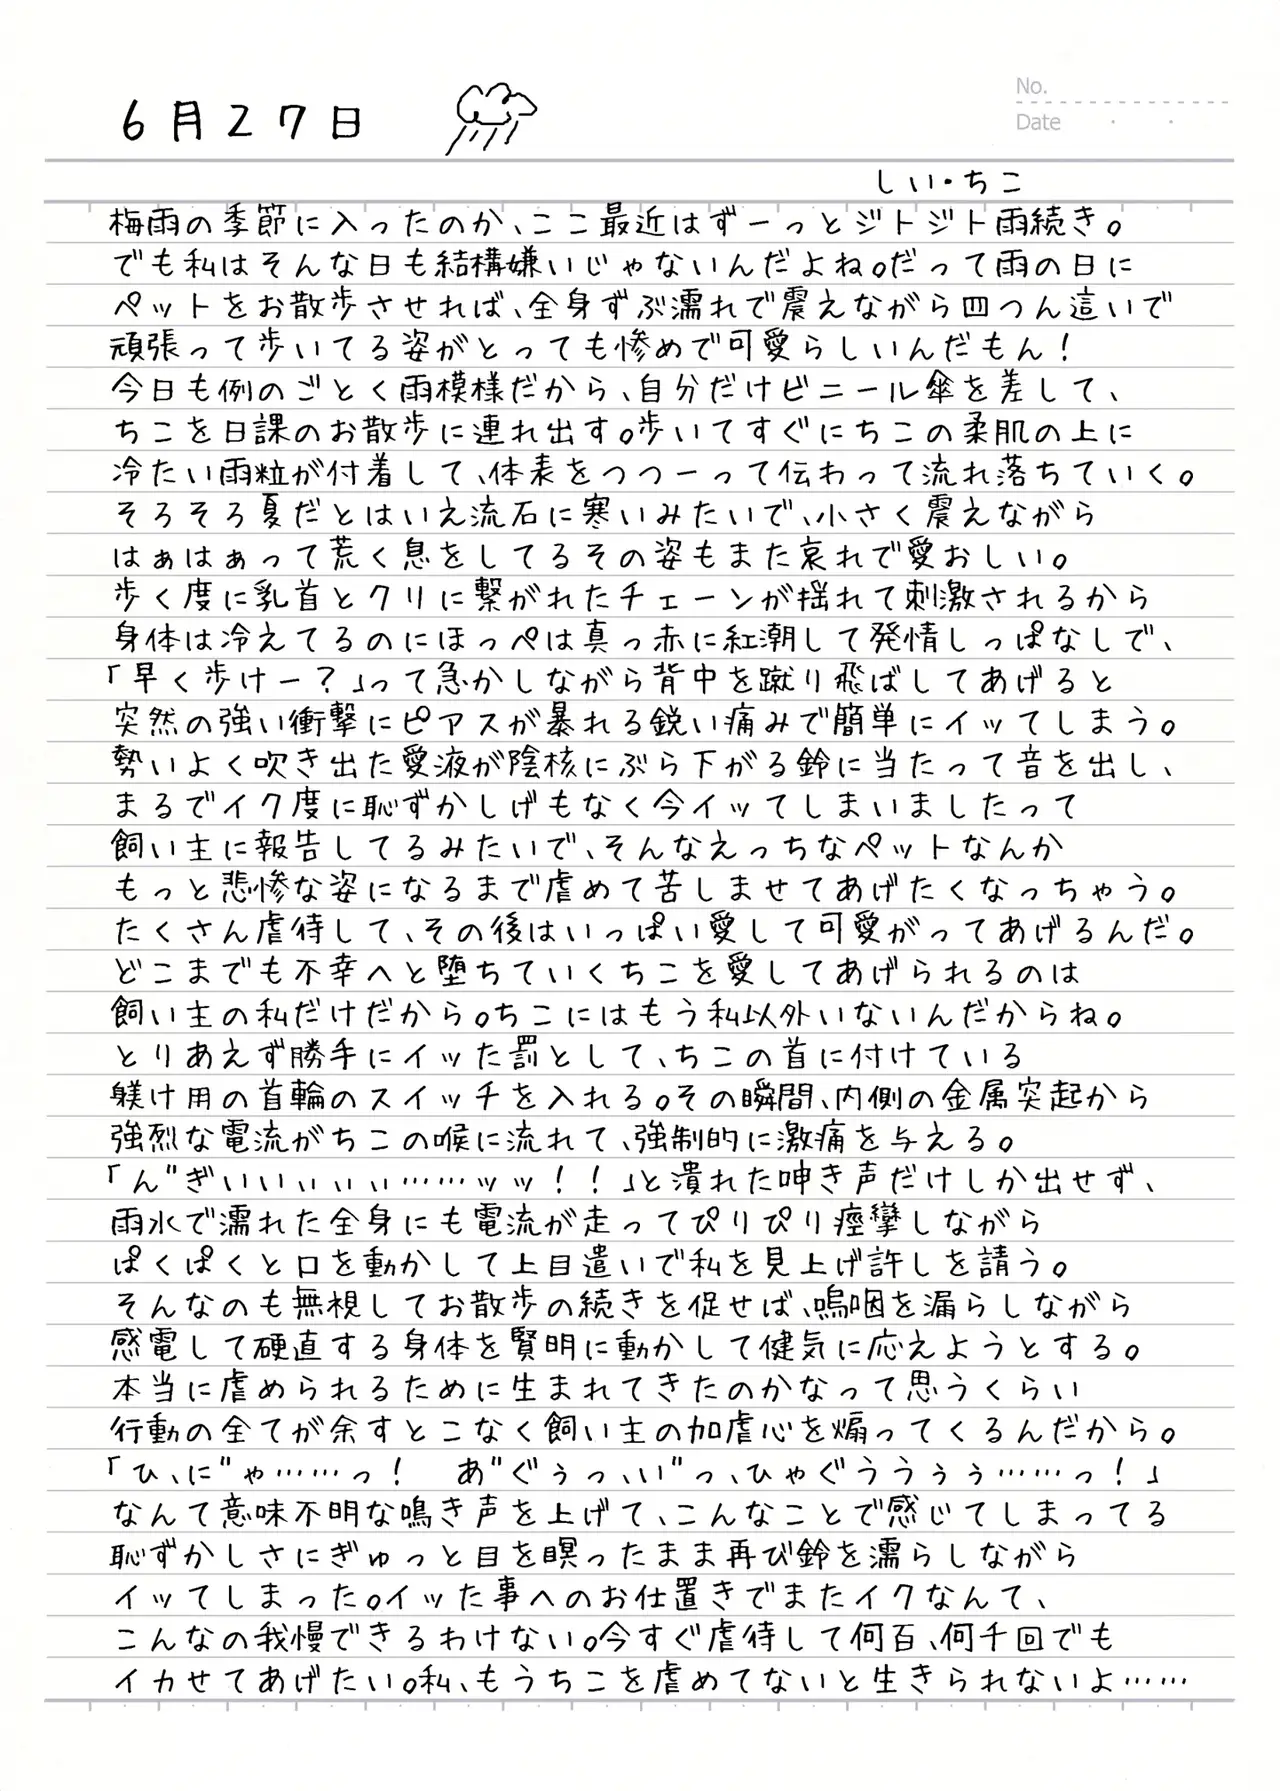 No.
6月27日
Date
しい・ちこ
梅雨の季節に入ったのか、ここ最近はずーっとジトジト雨続き。
でも私はそんな日も結構嫌いじゃないんだよね。だって雨の日に
ペットをお散歩させれば、全身ずぶ濡れで震えながら四つん這いで
頑張って歩いてる姿がとっても惨めで可愛らしいんだもん！
今日も例のごとく雨模様だから、自分だけビニール傘を差して、
ちこを日課のお散歩に連れ出す。歩いてすぐにちこの柔肌の上に
冷たい雨粒が付着して、体表をつつーって伝わって流れ落ちていく。
そろそろ夏だとはいえ流石に寒いみたいで、小さく震えながら
はぁはぁって荒く息をしてるその姿もまた哀れで愛おしい。
歩く度に乳首とクリに繋がれたチェーンが揺れて刺激されるから
身体は冷えてるのにほっぺは真っ赤に紅潮して発情しっぱなしで、
「早く歩けー？」って急かしながら背中を蹴り飛ばしてあげると
突然の強い衝撃にピアスが暴れる鋭い痛みで簡単にイッてしまう。
勢いよく吹き出た愛液が陰核にぶら下がる鈴に当たって音を出し、
まるでイク度に恥ずかしげもなく今イッてしまいましたって
飼い主に報告してるみたいで、そんなえっちなペットなんか
もっと悲惨な姿になるまで虐めて苦しませてあげたくなっちゃう。
たくさん虐待して、その後はいっぱい愛して可愛がってあげるんだ。
どこまでも不幸へと堕ちていくちこを愛してあげられるのは
飼い主の私だけだから。ちこにはもう私以外いないんだからね。
とりあえず勝手にイッた罰として、ちこの首に付けている
躾け用の首輪のスイッチを入れる。その瞬間、内側の金属突起から
強烈な電流がちこの喉に流れて、強制的に激痛を与える。
「ん゛ぎいいぃぃぃ……ッッ！！」と潰れた呻き声だけしか出せず、
雨水で濡れた全身にも電流が走ってぴりぴり痙攣しながら
ぱくぱくと口を動かして上目遣いで私を見上げ許しを請う。
そんなのも無視してお散歩の続きを促せば、嗚咽を漏らしながら
感電して硬直する身体を賢明に動かして健気に応えようとする。
本当に虐められるために生まれてきたのかなって思うくらい
行動の全てが余すとこなく飼い主の加虐心を煽ってくるんだから。
「ひ、に゛ゃ……っ！　あ゛ぐぅっ、い゛っ、ひゃぐううぅぅ……っ！」
なんて意味不明な鳴き声を上げて、こんなことで感じてしまってる
恥ずかしさにぎゅっと目を瞑ったまま再び鈴を濡らしながら
イッてしまった。イッた事へのお仕置きでまたイクなんて、
こんなの我慢できるわけない。今すぐ虐待して何百、何千回でも
イカせてあげたい。私、もうちこを虐めてないと生きられないよ……